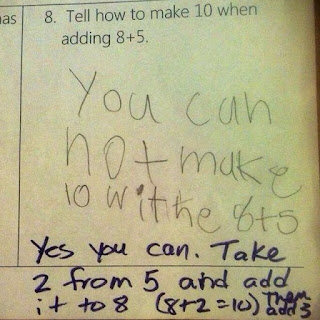 as
8. Tell how to make 10 when
adding 8+5.
You can
not make
10 withe 8+5
Yes you can. Take
2 from 5 and add
it to 8 (8+2=10) Then add 3